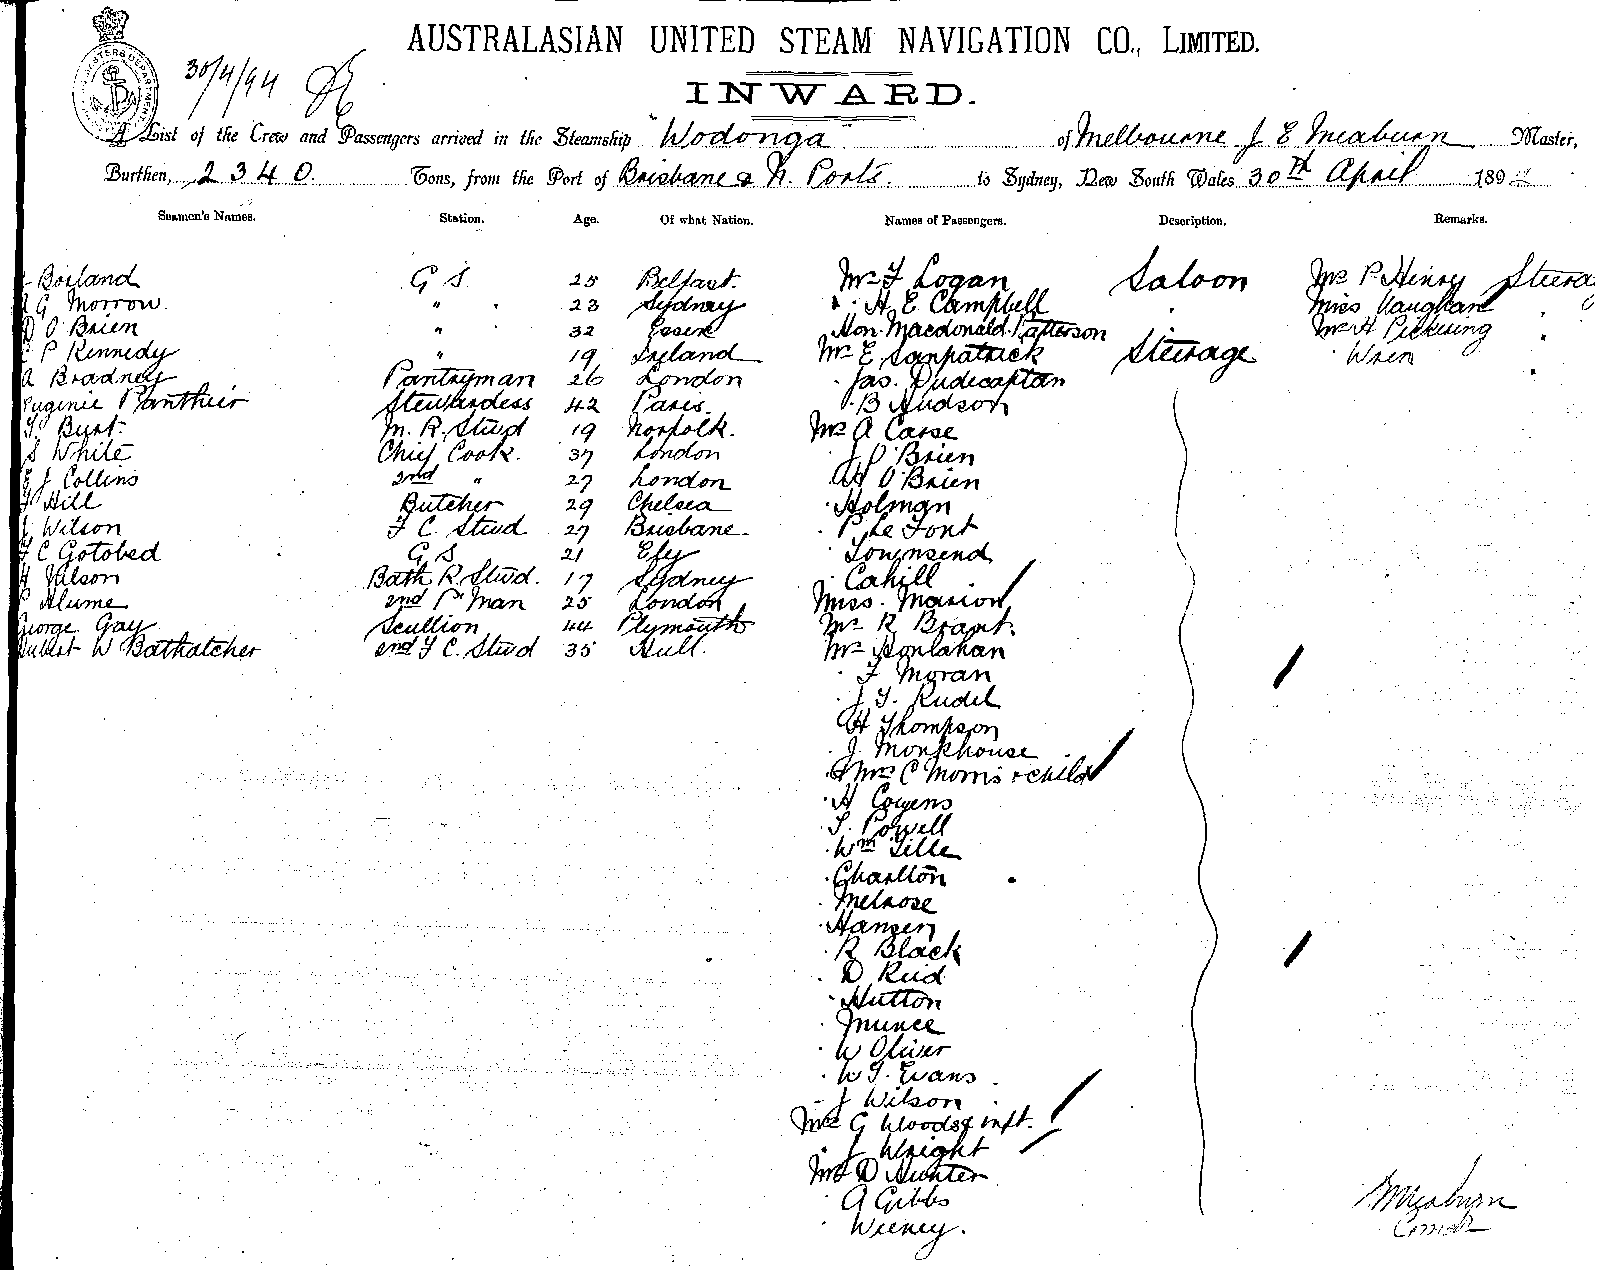 CUSTOMS DEPARTMENT
30/4/94
AUSTRALASIAN UNITED STEAM NAVIGATION CO., LIMITED.
INWARD.
A List of the Crew and Passengers arrived in the Steamship "Wodonga" of Melbourne J E Meaburn Master,
Burthen, 2340. Tons, from the Port of Brisbane & N. Ports. to Sydney, New South Wales 30th April 1894
Seamen's Names. Station. Age. Of what Nation. Names of Passengers. Description. Remarks.
Borland G S. 25 Belfast. Mr F Logan Saloon Mrs P. Henry Steerag
G Morrow. " " 23 Sydney " H E Campbell " Miss Vaughan "
D O Brien " 32 Essex Hon. Macdonald Patterson Mr H Pickering "
P Kennedy " 19 Ireland Mr E Sanpatrick Steerage " Wren "
A Bradney Pantryman 26 London " Jas. Dudecaptan
Eugenie Pantheir Stewardess 42 Paris. " B Hudson
Burt. M. R. Stwd 19 Norfolk. Mr A Carse
S White Chief Cook. 37 London " J O'Brien
J Collins 2nd " 27 London " H O'Brien
Hill Butcher 29 Chelsea " Holman
J Wilson F C. Stwd 27 Brisbane. " P Le Font
F C Gotobed G S 21 Ely " Townsend
H Wilson Bath R. Stwd. 17 Sydney " Cahill
P Hume 2nd P Man 25 London Miss. Marion
George Gay Scullion 44 Plymouth Mr R Brant.
Hubert W Bathatcher 2nd F C. Stwd 35 Hull. Mr Honlahan
" F Moran
" J T. Rudel
" H Thompson
" J. Monkhouse
" & Mrs C Morris & child
" H Coyens
" T. Powell
" Wm Tille
" Charlton
" Melrose
" Hansen
" R Black
" D Reid
" Hutton
" Munce
" W Oliver
" W T. Evans
" J Wilson
Mrs G Woods & inft.
" J Wright
Mr D Hunter
" A Gibbs
" Weeney.
J E Meaburn
Comdr